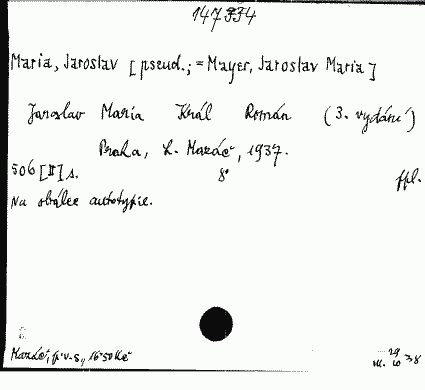 147334
Maria, Jaroslav [pseud.; = Mayer, Jaroslav Maria]
Jaroslav Maria Král Román (3. vydání)
Praha, L. Mazáč, 1937.
506 [II] s. 8° ppl.
Na obálce autotypie.
Mazáč, p. v. s., 16·50 Kč